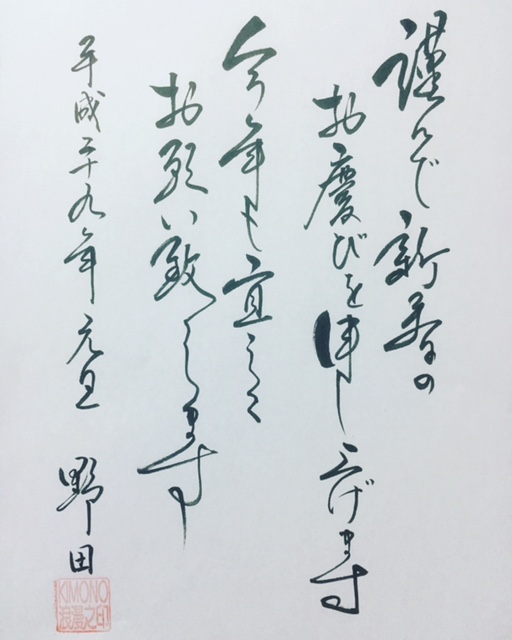 謹んで新春の
お慶びを申し上げます
今年も宜しく
お願い致します
平成二十九年 元旦
野田
KIMONO
浪漫之印